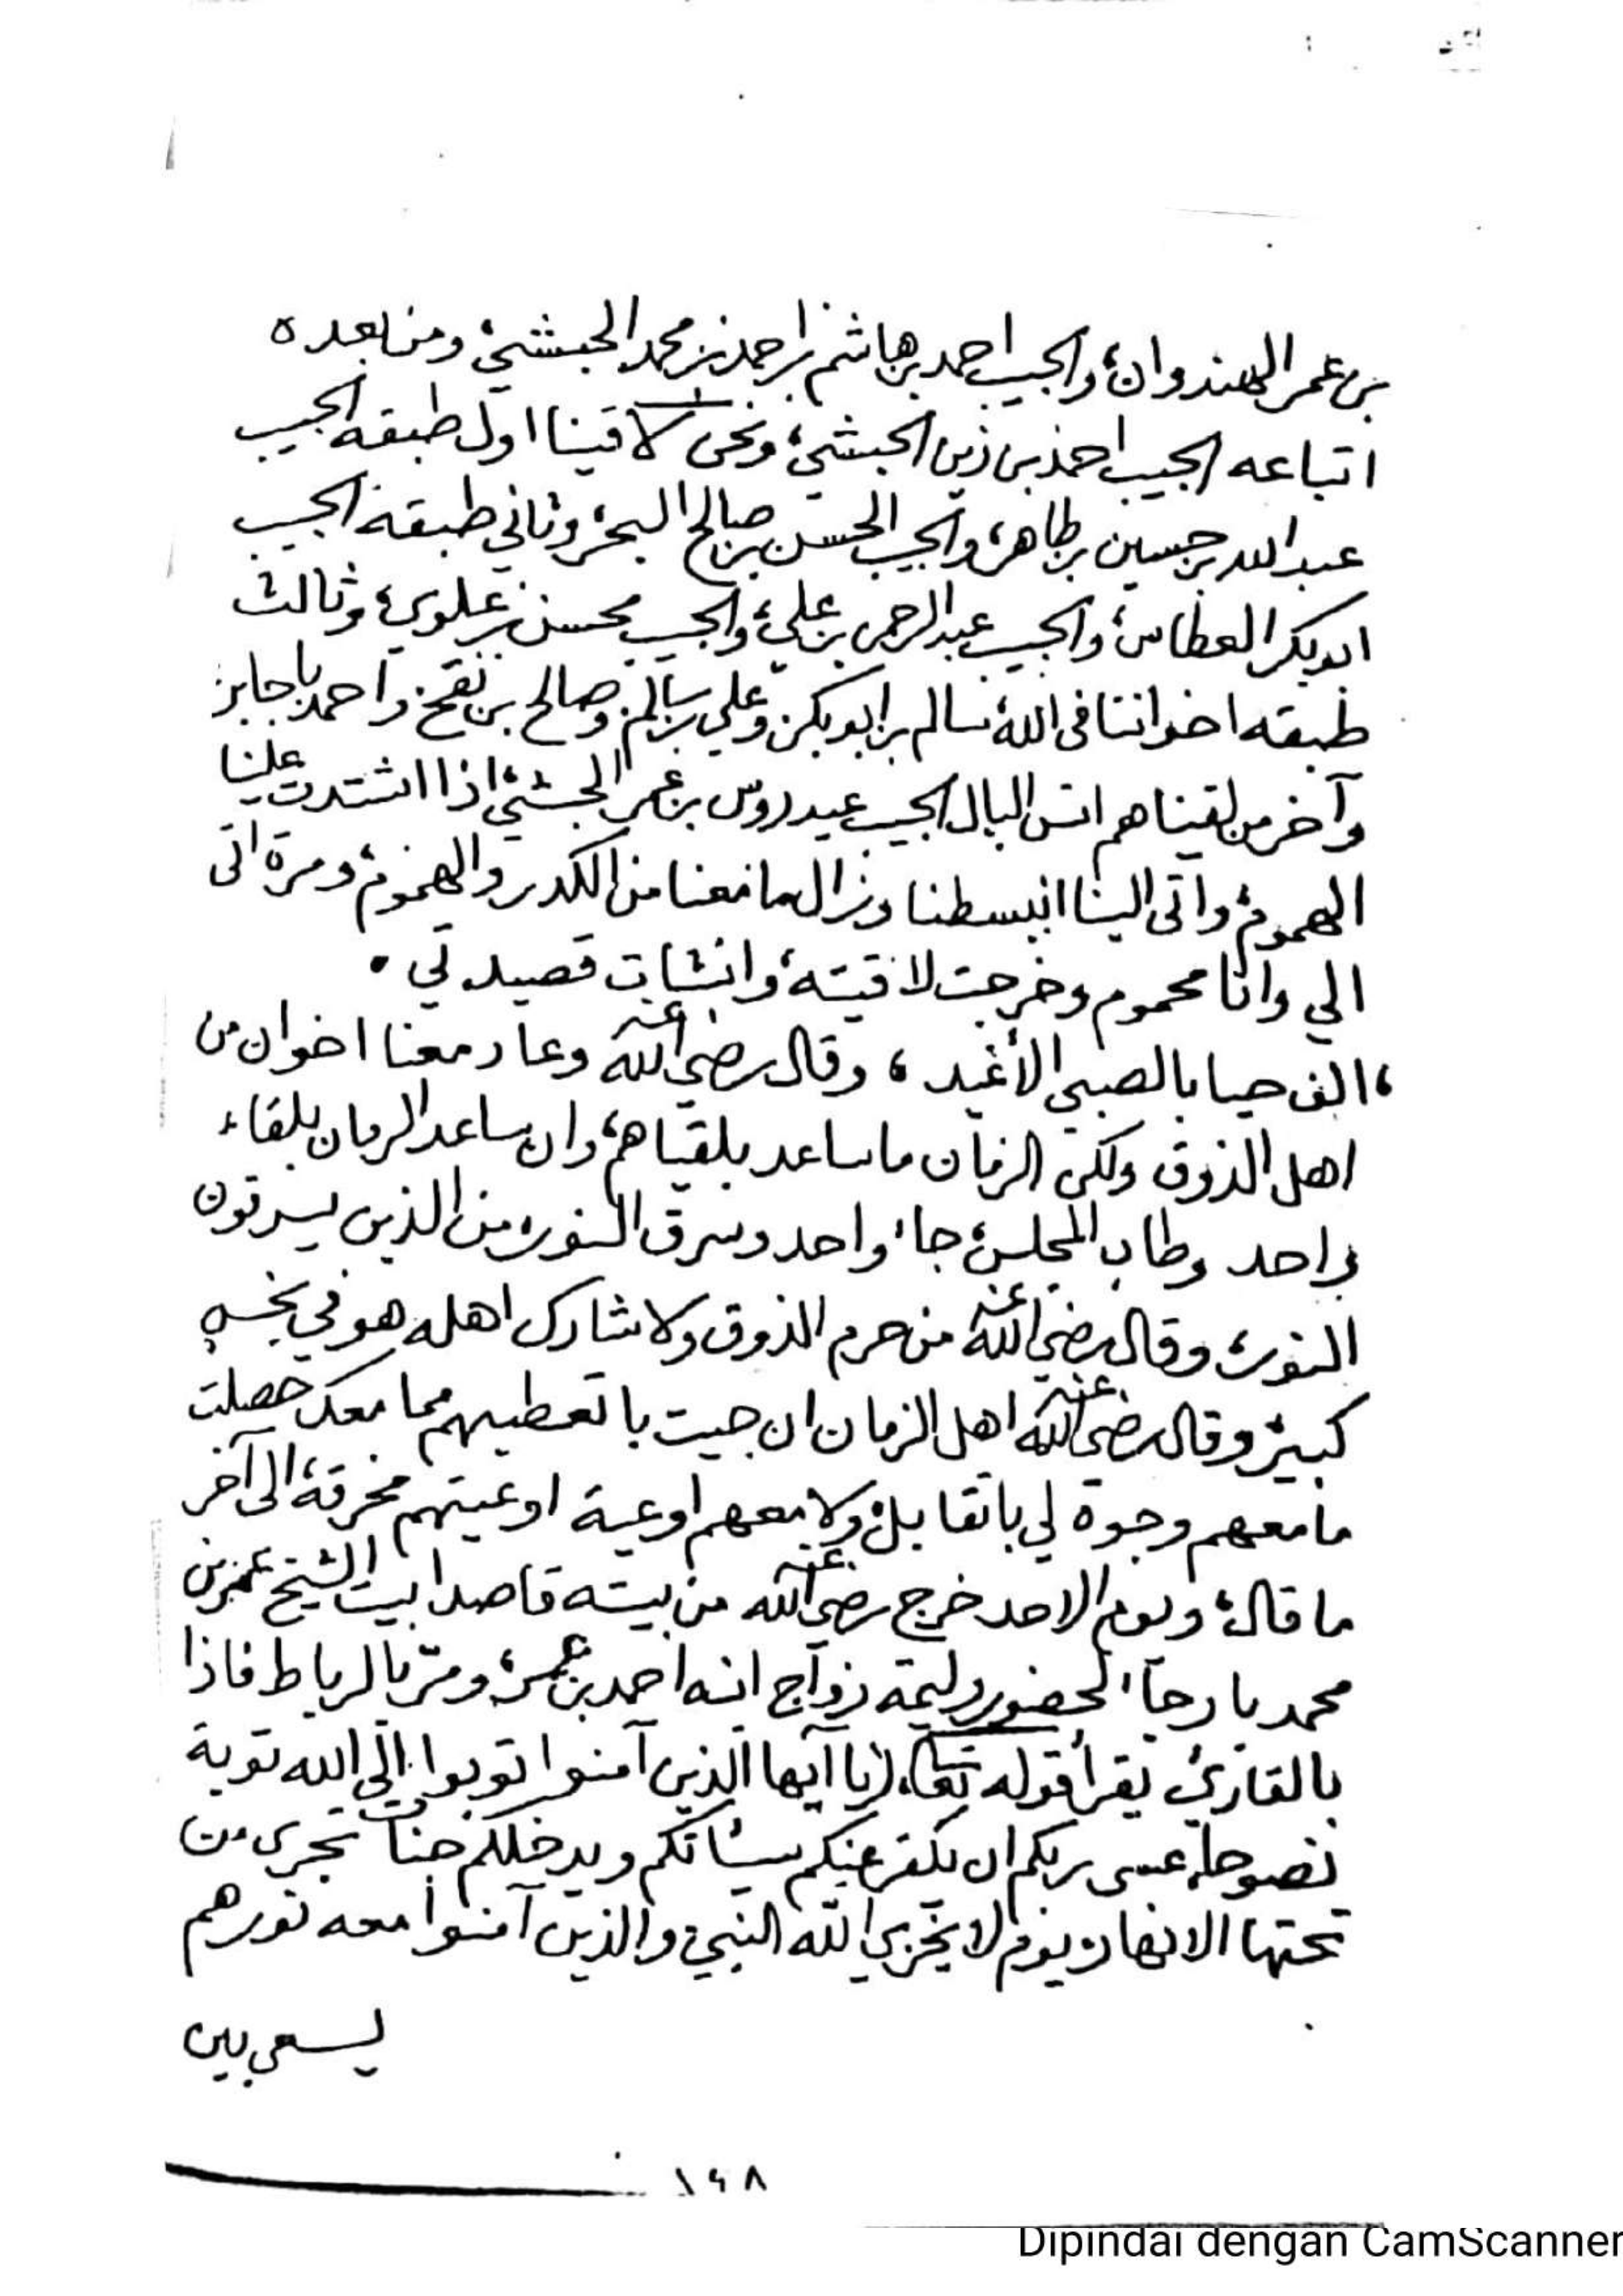 بن عمر الهندوان، والحبيب احمد بن هاشم بن احمد بن محمد الحبشي، ومن بعده
اتباعه الحبيب احمد بن زين الحبشي، ونحن لاقينا اول طبقه الحبيب
عبدالله بن حسين بن طاهر، والحبيب الحسن بن صالح البحر، وثاني طبقة الحبيب
ابوبكر العطاس، والحبيب عبدالرحمن بن علي، والحبيب محسن بن علوي، وثالث
طبقه اخواننا في الله، سالم بن ابوبكر، وعلي بن سالم، وصالح بن واحمد باجابر
وآخر من لقيناهم انس البال الحبيب عيدروس بن عمر الحبشي، اذا اشتدت علينا
الهموم، واتى الينا انبسطنا وزال ما معنا من الكدر والهموم، ومرة اتى
الي وانا محموم وخرجت لاقيته، وانشات قصيدتي .
، الف حيا بالصبي الأغيد ، وقال رضي الله عنه وعاد معنا اخوان من
اهل الذوق ولكن الزمان ماساعد بلقياهم، وان ساعد الزمان بلقاء
واحد وطاب المجلس، جاء واحد وسرق النور، من الذين يسرقون
النور، وقال رضي الله عنه من حرم الذوق ولا شارك اهله هو في
كبير، وقال رضي الله عنه اهل الزمان ان جيت با تعطيهم مما معك حصلت
مامعهم وجوة لي باتقابل، ولا معهم اوعية اوعيتهم مخرقة، الى آخر
ما قال، ويوم الاحد خرج رضي الله عنه من بيته قاصدا بيت الشيخ عمر بن
محمد بارجاء لحضور وليمة زواج ابنه احمد بن عمر، ومرّ بالرباط فاذا
بالقارئ يقرأ قوله تعالى، (يا ايها الذين آمنوا توبوا الى الله توبة
نصوحا، عسى ربكم ان يكفر عنكم سيئاتكم ويدخلكم جنات تجري من
تحتها الانهار، يوم لا يخزي الله النبي، والذين آمنوا معه نورهم
يسعى بين
١٤٨
Dipindai dengan CamScanner